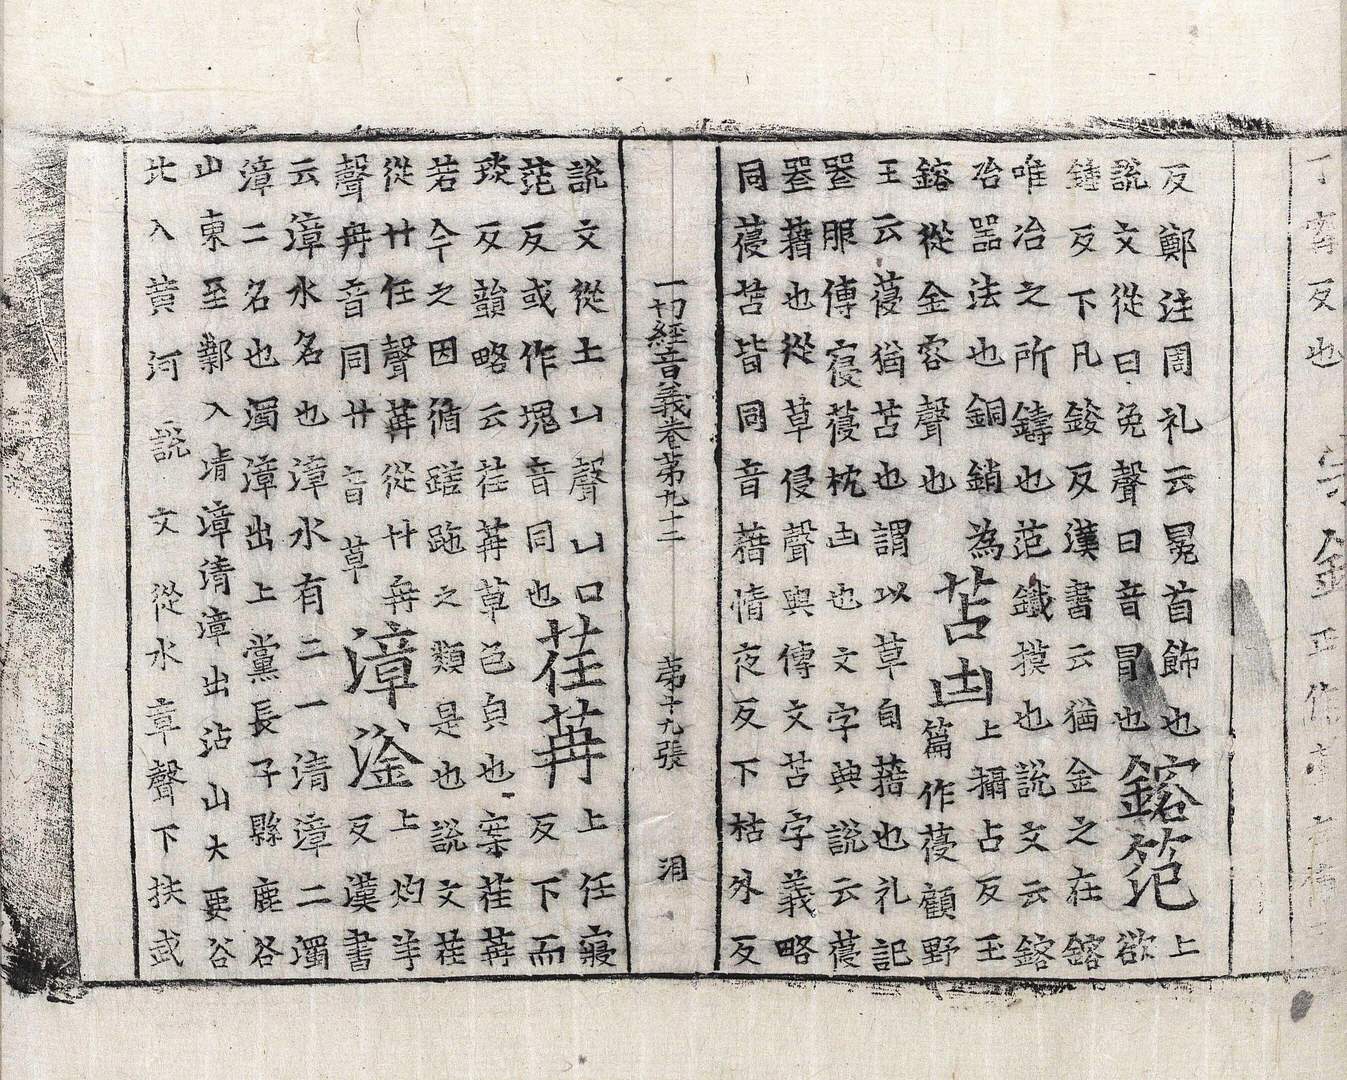 反也
反鄭注周礼云冕首飾也
説文從曰免聲曰音冒也
鎔笵
上
欲
鍾反下凡錽反漢書云猶金之在鎔
唯冶之所鑄也笵鐵摸也説文云鎔
冶器法也銅銷為
鎔從金容聲也
苫凷
上攝占反玉
篇作䕊顧野
王云䕊猶苫也謂以草自藉也礼記
喪服傳寑䕊枕凷也文字典説云䕊
喪藉也從草侵聲與傳文苫字義略
同䕊苫皆同音藉情夜反下枯外反
一切經音義卷第九十二 第十九張
説文從土凵聲凵口
笵反或作塊音同也
荏苒
上任寢
反下而
琰反韻略云荏苒草色皃也案荏苒
若今之因循蹉跎之類是也説文荏
從廾任聲苒從廾冉
聲冉音同廾音草
漳滏
上灼羊
反漢書
云漳水名也漳水有二一清漳二濁
漳二名也濁漳出上黨長子縣鹿谷
山東至鄴入清漳清漳出沾山大要谷
北入黄河説文從水章聲下扶武